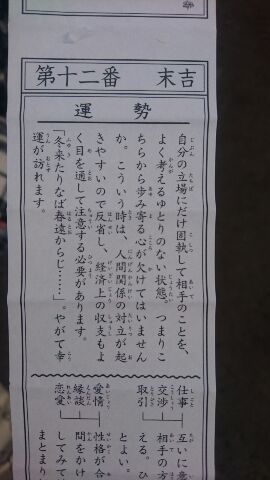 第十二番 末吉
運勢
自分の立場にだけ固執して相手のことを、
よく考えるゆとりのない状態。つまりこ
ちらから歩み寄る心が欠けてはいません
か。こういう時は、人間関係の対立が起
きやすいので反省し、経済上の収支もよ
く目を通して注意する必要があります。
「冬来たりなば春遠からじ……」。やがて幸
運が訪れます。
仕事
交渉
取引
互いに意
相手の方
える。ひ
とよい。
愛情
縁談
恋愛
性格が合
間をかけ
してみて
まとまり